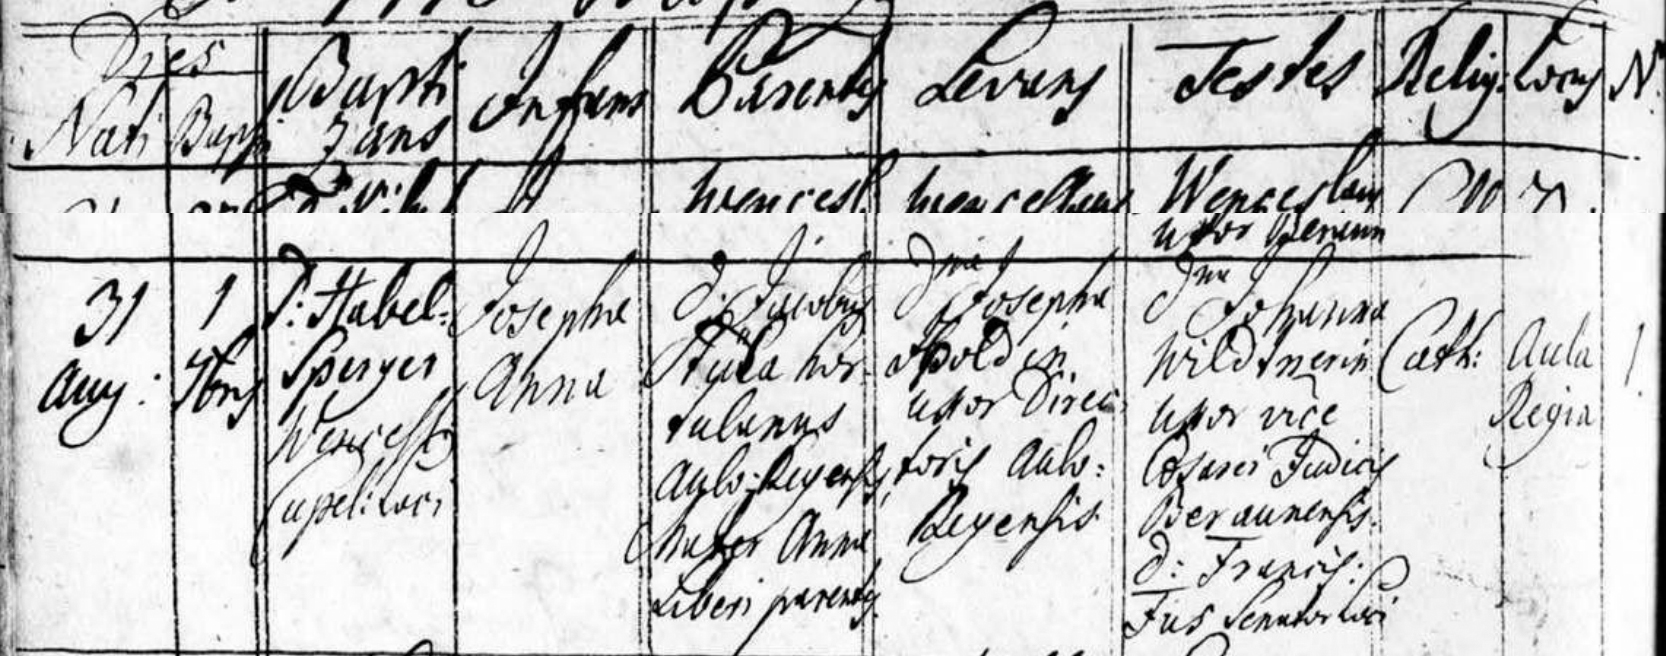 Dies
Nati Bapti
Bapti
zans
Infans
Parentes
Levans
Testes
Relig: Locus N:
Wencesl
Wenceslaus
Wenceslaus
uxor
31
Aug:
1
7bris
P: Habel-
Sperger
Wencesl
Capel: Loci
Josepha
Anna
d: Jacobus
hor-
tulanus
Aulo-Regensis,
Mater Anna
Liberi parentes
dna Josepha
uxor Direc
toris Aulo-
Regensis
Dna Johanna
Wildtnerin
uxor vice
Cæsarei Judicis
Beraunensis.
d: Francis:
Fus Senator Loci
Cath:
Aula
Regia
1